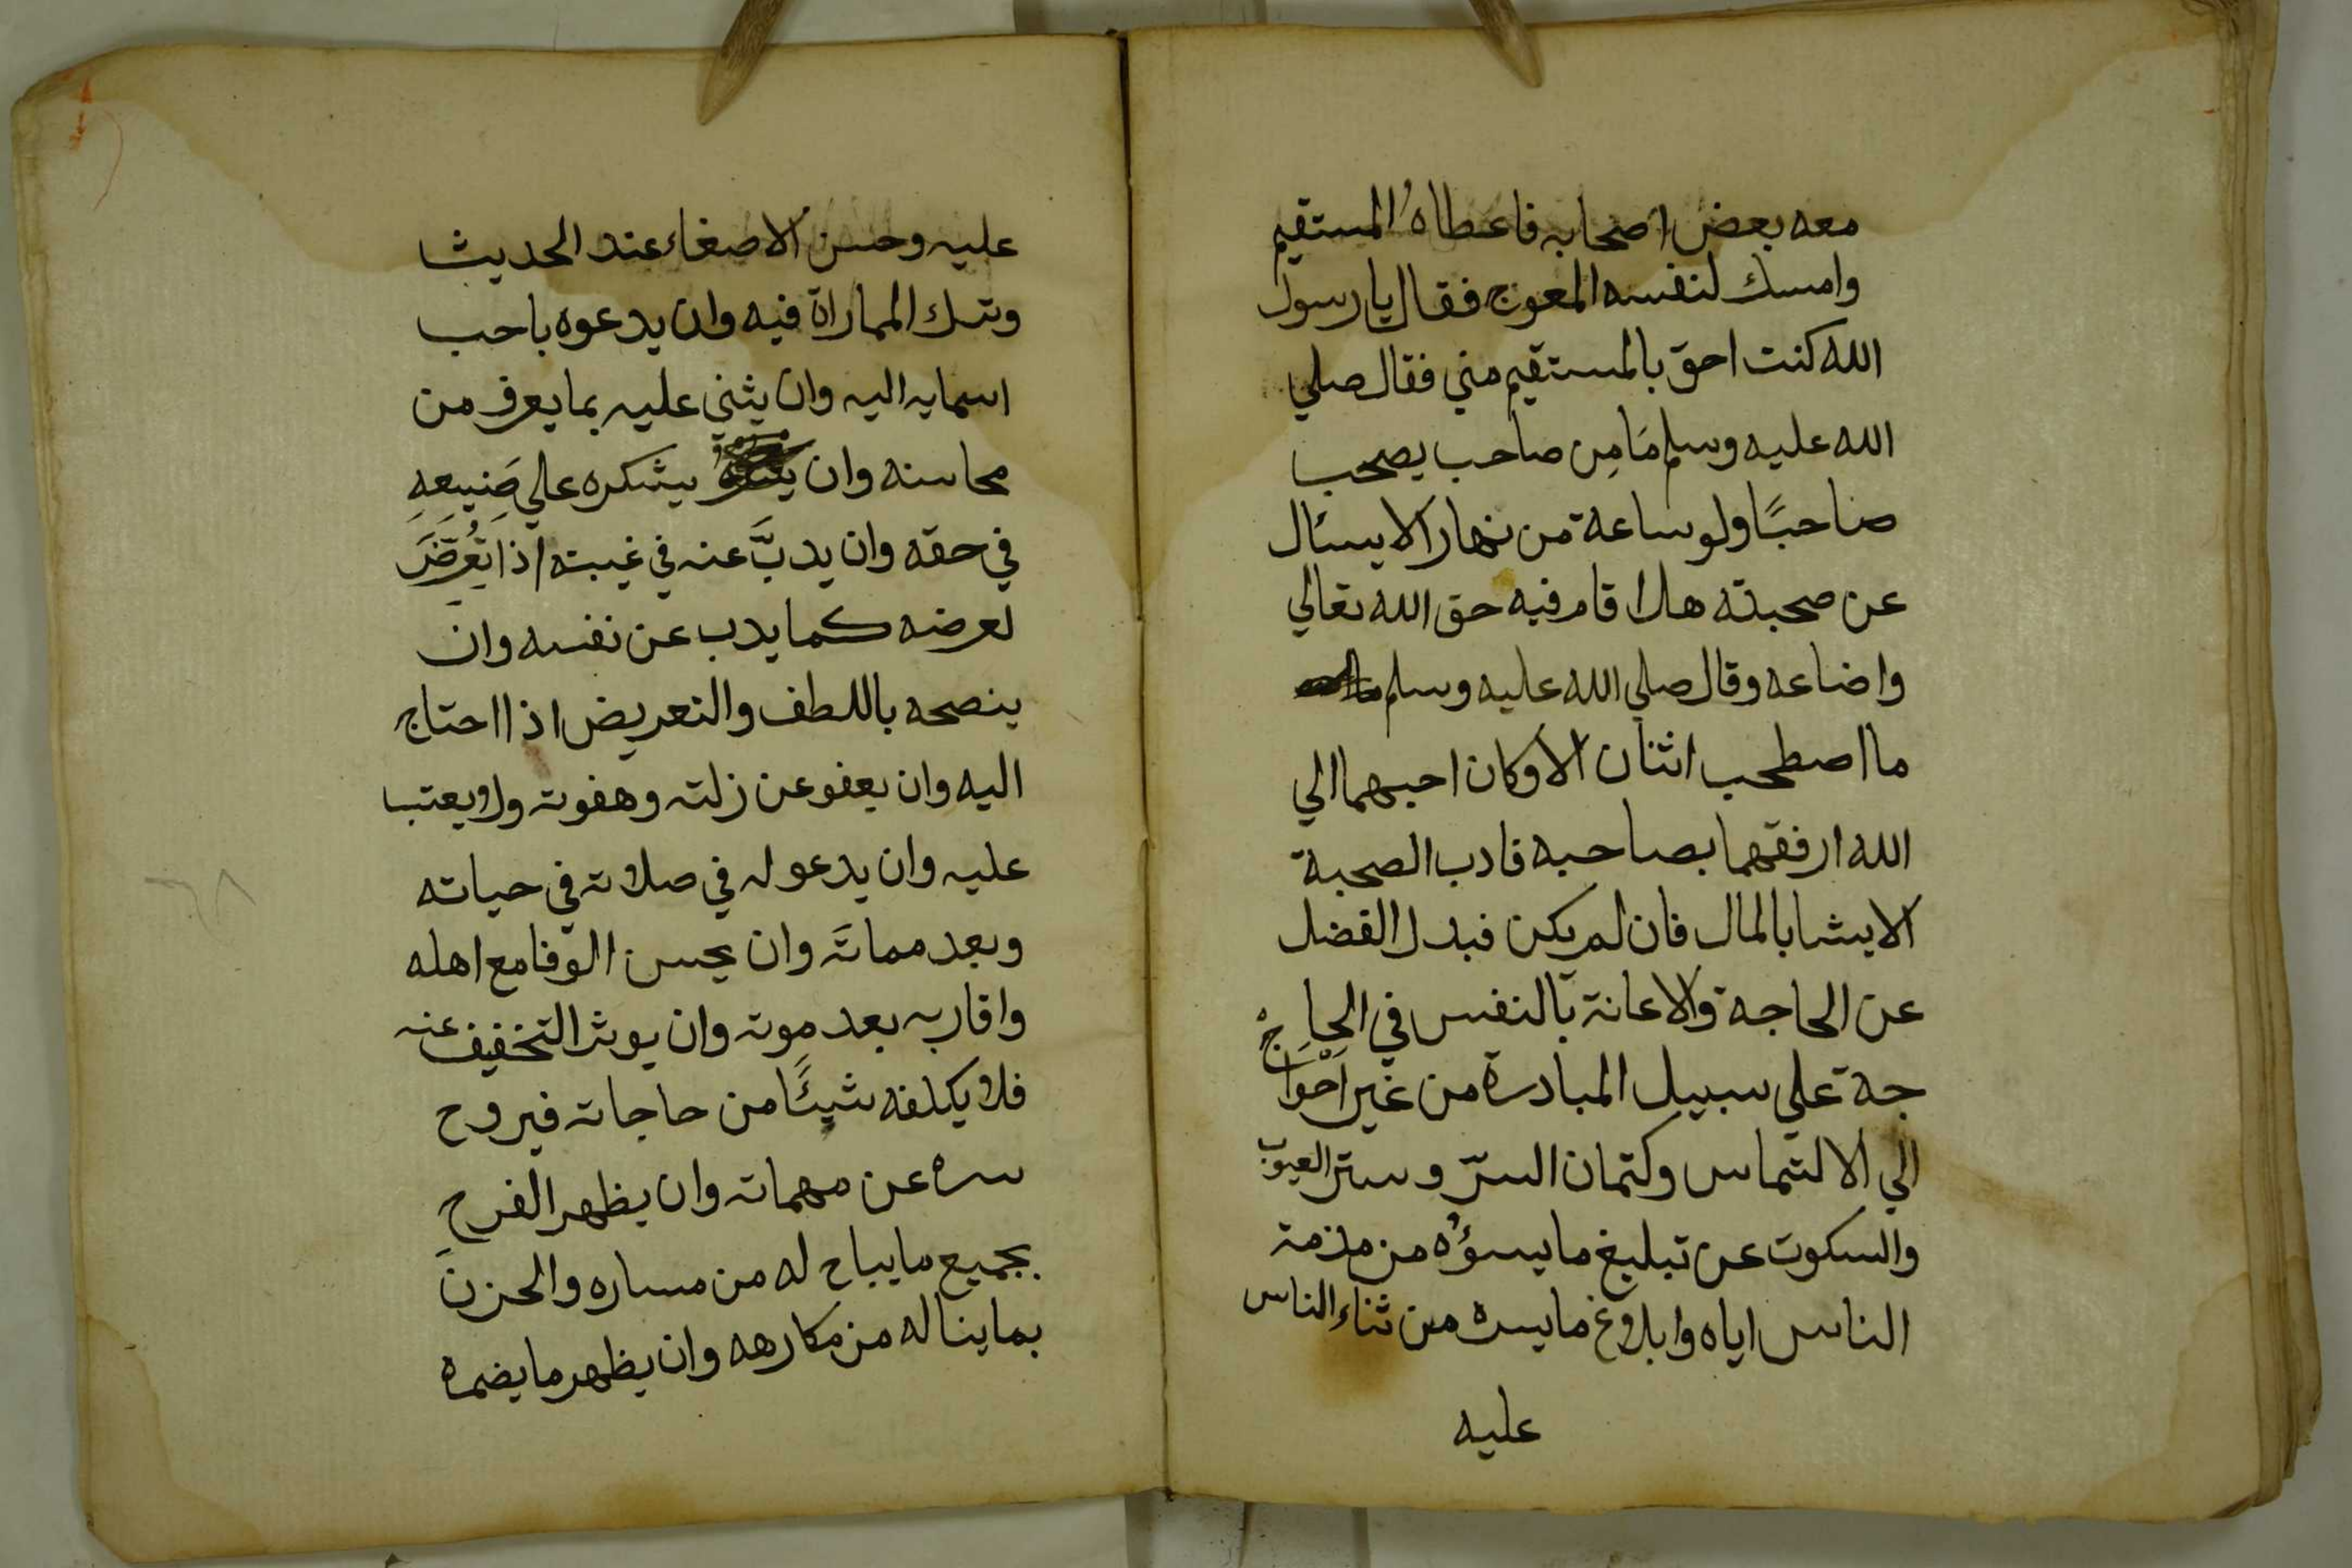 معه بعض اصحابه فاعطاهُ المستقيم
وامسك لنفسه المعوج فقال يا رسول
الله كنت احق بالمستقيم مني فقال صلي
الله عليه وسلم مَا مِن صاحب يصحب
صاحبًا ولو ساعة من نهار الا يسئال
عن صحبته هل اقام فيه حق الله تعالي
واضاعه وقال صلي الله عليه وسلم
ما اصطحب اثنان الا وكان احبهما الي
الله ارفقهما بصاحبه فادب الصحبة
الايثا بالمال فان لم يكن فبدل الفضل
عن الحاجة والاعانة بالنفس في الحا
جة علي سبيل المبادرة من غير اَحْوَاج
الي الالتماس وكتمان السرّ وستر العيوب
والسكوت عن تبليغ ما يسؤُه من مذمة
الناس اياه وابلاغ ما يسره من ثناء الناس
عليه
عليه وحسن الاصغاء عند الحديث
وترك المماراة فيه وان يدعوه باحب
اسمايه اليه وان يثني عليه بما يعرف من
محاسنه وان يشكره علي صَنِيعِهِ
في حقه وان يدبَّ عنه في غيبته اذا تُعُرِّضَ
لعرضه كما يدب عن نفسه وان
ينصحه باللطف والتعريض اذا احتاج
اليه وان يعفو عن زلته وهفوته ولا يعتب
عليه وان يدعو له في صلاته في حياته
وبعد مماته وان يحسن الوفا مع اهله
واقاربه بعد موته وان يوثر التخفيف عنه
فلا يكلفه شيئًا من حاجاته فيروح
سره عن مهماته وان يظهر الفرح
بجميع ما يباح له من مساره والحزن
بما يناله من مكارهه وان يظهر ما يضمره
٦٨